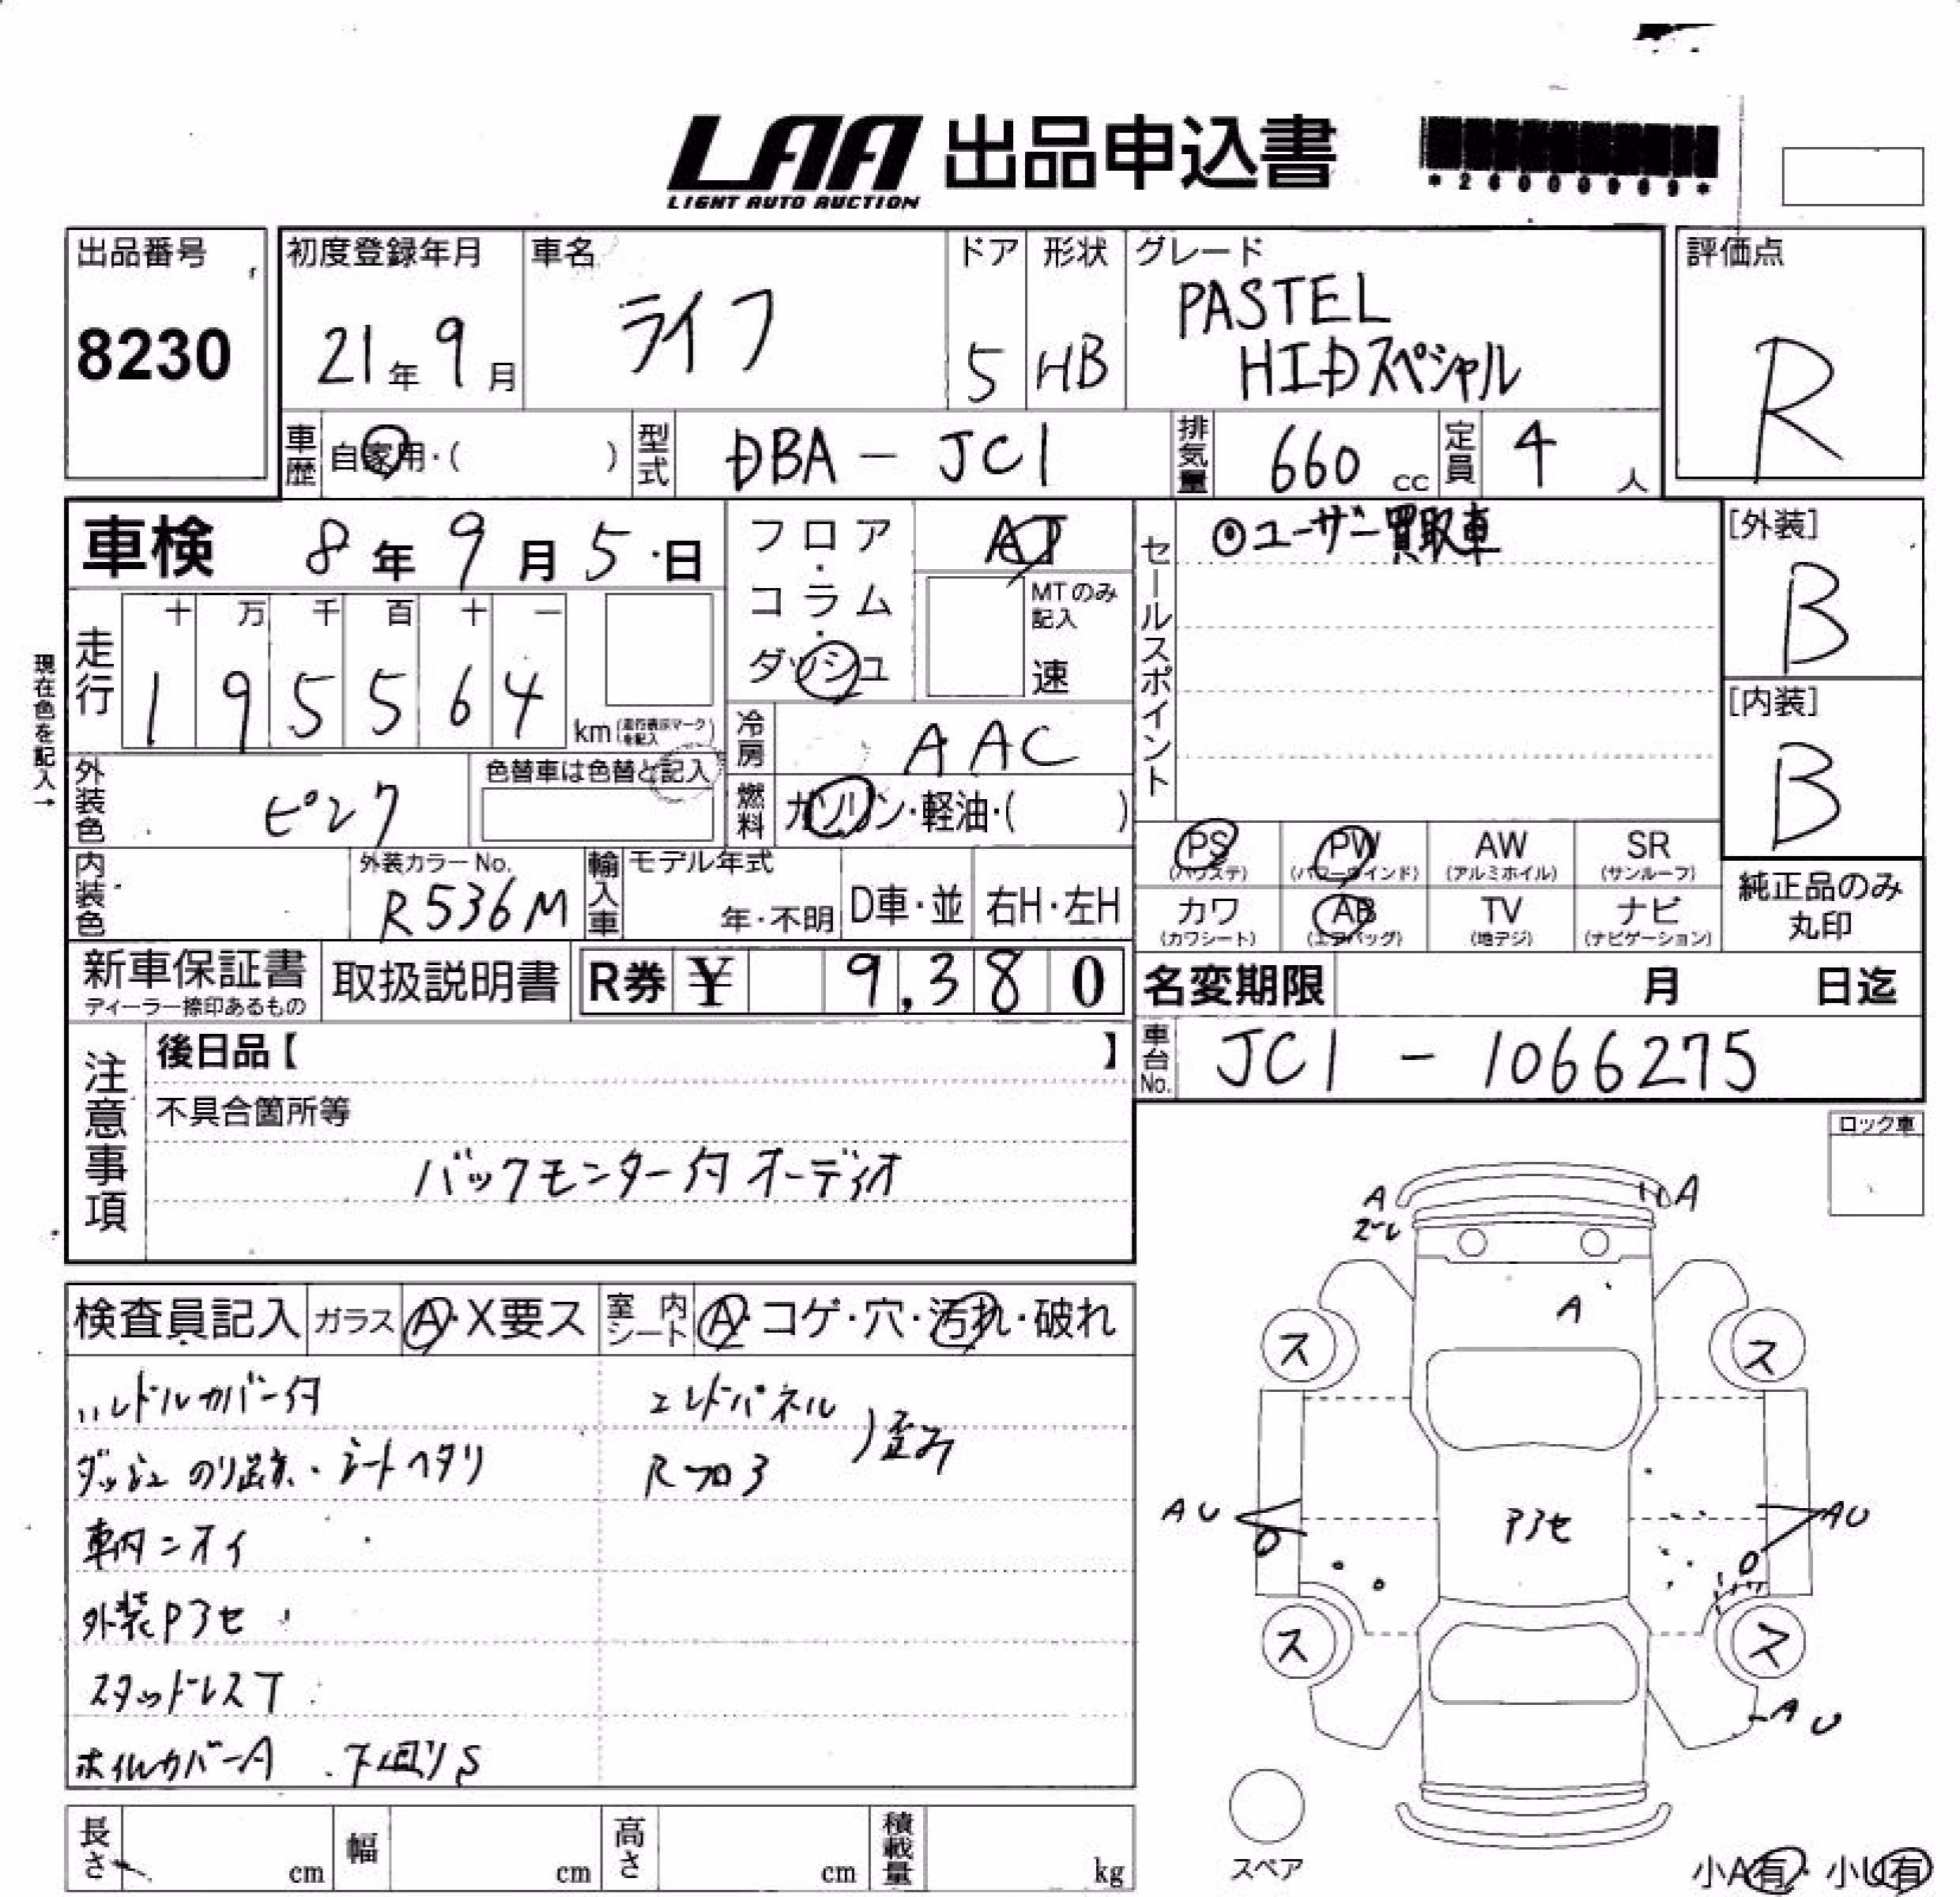 LAA 出品申込書
LIGHT AUTO AUCTION
出品番号
8230
初度登録年月
21年 9月
車名
ライフ
ドア
5
形状
HB
グレード
PASTEL
HIDスペシャル
評価点
R
車歴 自家用・( )
型式 DBA-JC1
排気量 660 cc
定員 4 人
車検 8年 9月 5日
フロア・コラム・ダッシュ
AT
MTのみ記入
速
セールスポイント
⊙ユーザー買取車
[外装]
B
[内装]
B
現在色を記入→
走行
十 万 千 百 十 一
1 9 5 5 6 4
km (走行表示マークを記入)
冷房 AAC
外装色 ピンク
色替車は色替と記入
燃料 ガソリン・軽油・( )
内装色
外装カラーNo.
R536M
輸入車
モデル年式
年・不明
D車・並
右H・左H
PS (パワステ)
PW (パワーウインド)
AW (アルミホイル)
SR (サンルーフ)
カワ (カワシート)
AB (エアバッグ)
TV (地デジ)
ナビ (ナビゲーション)
純正品のみ
丸印
新車保証書
ディーラー捺印あるもの
取扱説明書
R券 ¥ 9,380
名変期限 月 日迄
車台No. JC1-1066275
注意事項
後日品【 】
不具合箇所等
バックモニター付オーディオ
ロック車
検査員記入
ガラス A・X要ス
室内シート A・コゲ・穴・汚れ・破れ
ハンドルカバー付
ダッシュ のり跡・シートヘタリ
車内ニオイ
外装Pアセ
スタッドレスT
ホイルカバーA 下回りS
エンドパネル
Rフロア
歪み
A
A
A
ス
ス
AU
Pアセ
AU
ス
ス
AU
スペア
小A有・小U有
長さ cm
幅 cm
高さ cm
積載量 kg